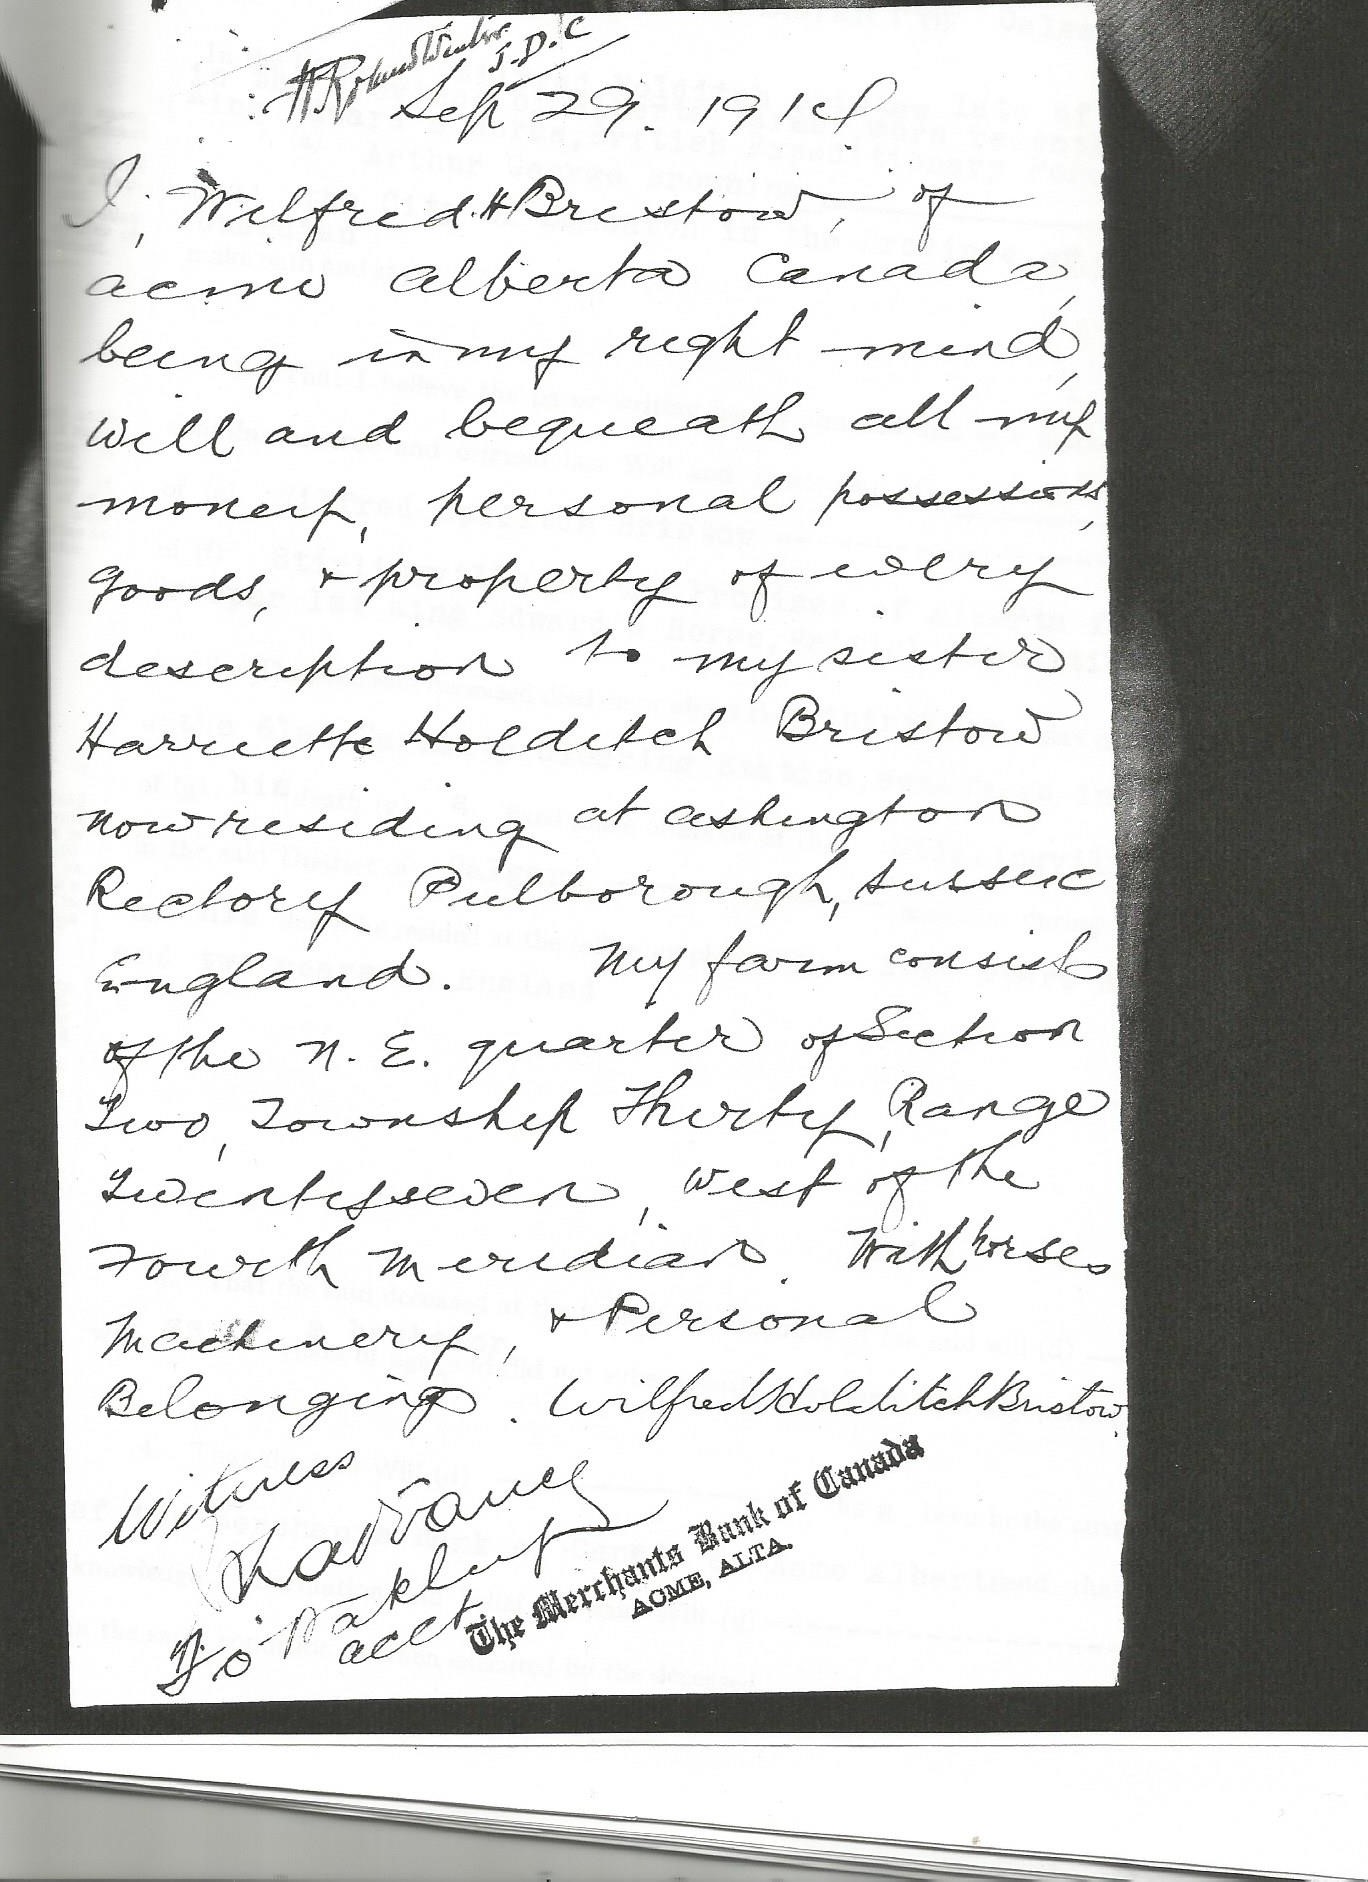 J.D.C
Sep 29. 1914
I, Wilfred H Bristow, of
acme alberta Canada,
being in my right mind,
will and bequeath all my
money, personal possessions,
goods, & property of every
description to my sister
Harriette Holditch Bristow
now residing at ashington
Rectory Pulborough, sussex
England. My farm consists
of the N. E. quarter of Section
Two, Township Thirty, Range
Twentyseven, West of the
Fourth Meridian. With horses
Machinery, & Personal
Belonging. Wilfred Holditch Bristow
Witness
acct
The Merchants Bank of Canada
ACME, ALTA.